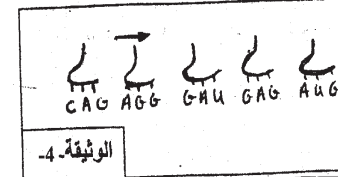 CAG AGG GAU GAG AUG
الوثيقة -4-